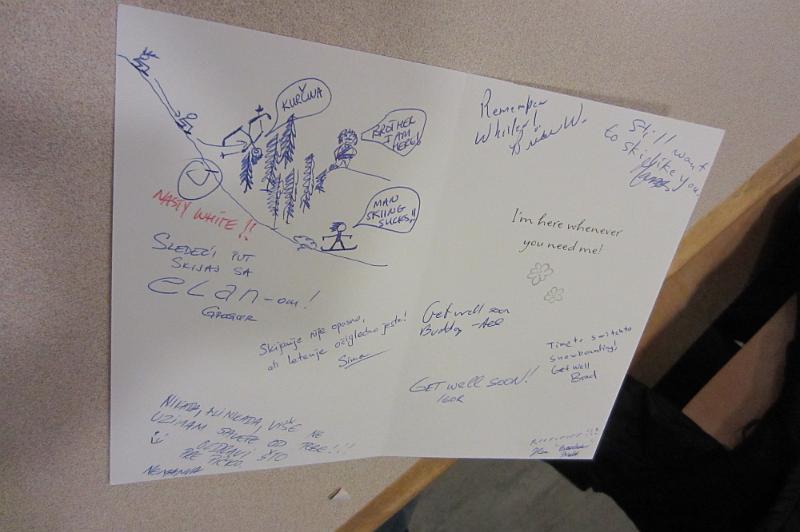 KURČINA
BROTHER
I AM
HERE!
MAN
SKIING
SUCKS!!
NASTY WHITE!!
SLEDEĆI PUT
SKIJAŠ SA
eLan-om!
Skijanje nije opasno,
ali letenje očigledno jeste!
Sima
NIKADA, NI NIKADA, VIŠE NE
UZIMAM SAVETE OD TEBE!!!
OZDRAVI ŠTO
PRE
Remember
Whistler!
Still want
to ski like you
I'm here whenever
you need me!
Get well soon
Buddy
Time to switch to
snowboarding!
Get well
Brad
GET WELL SOON!
IGOR